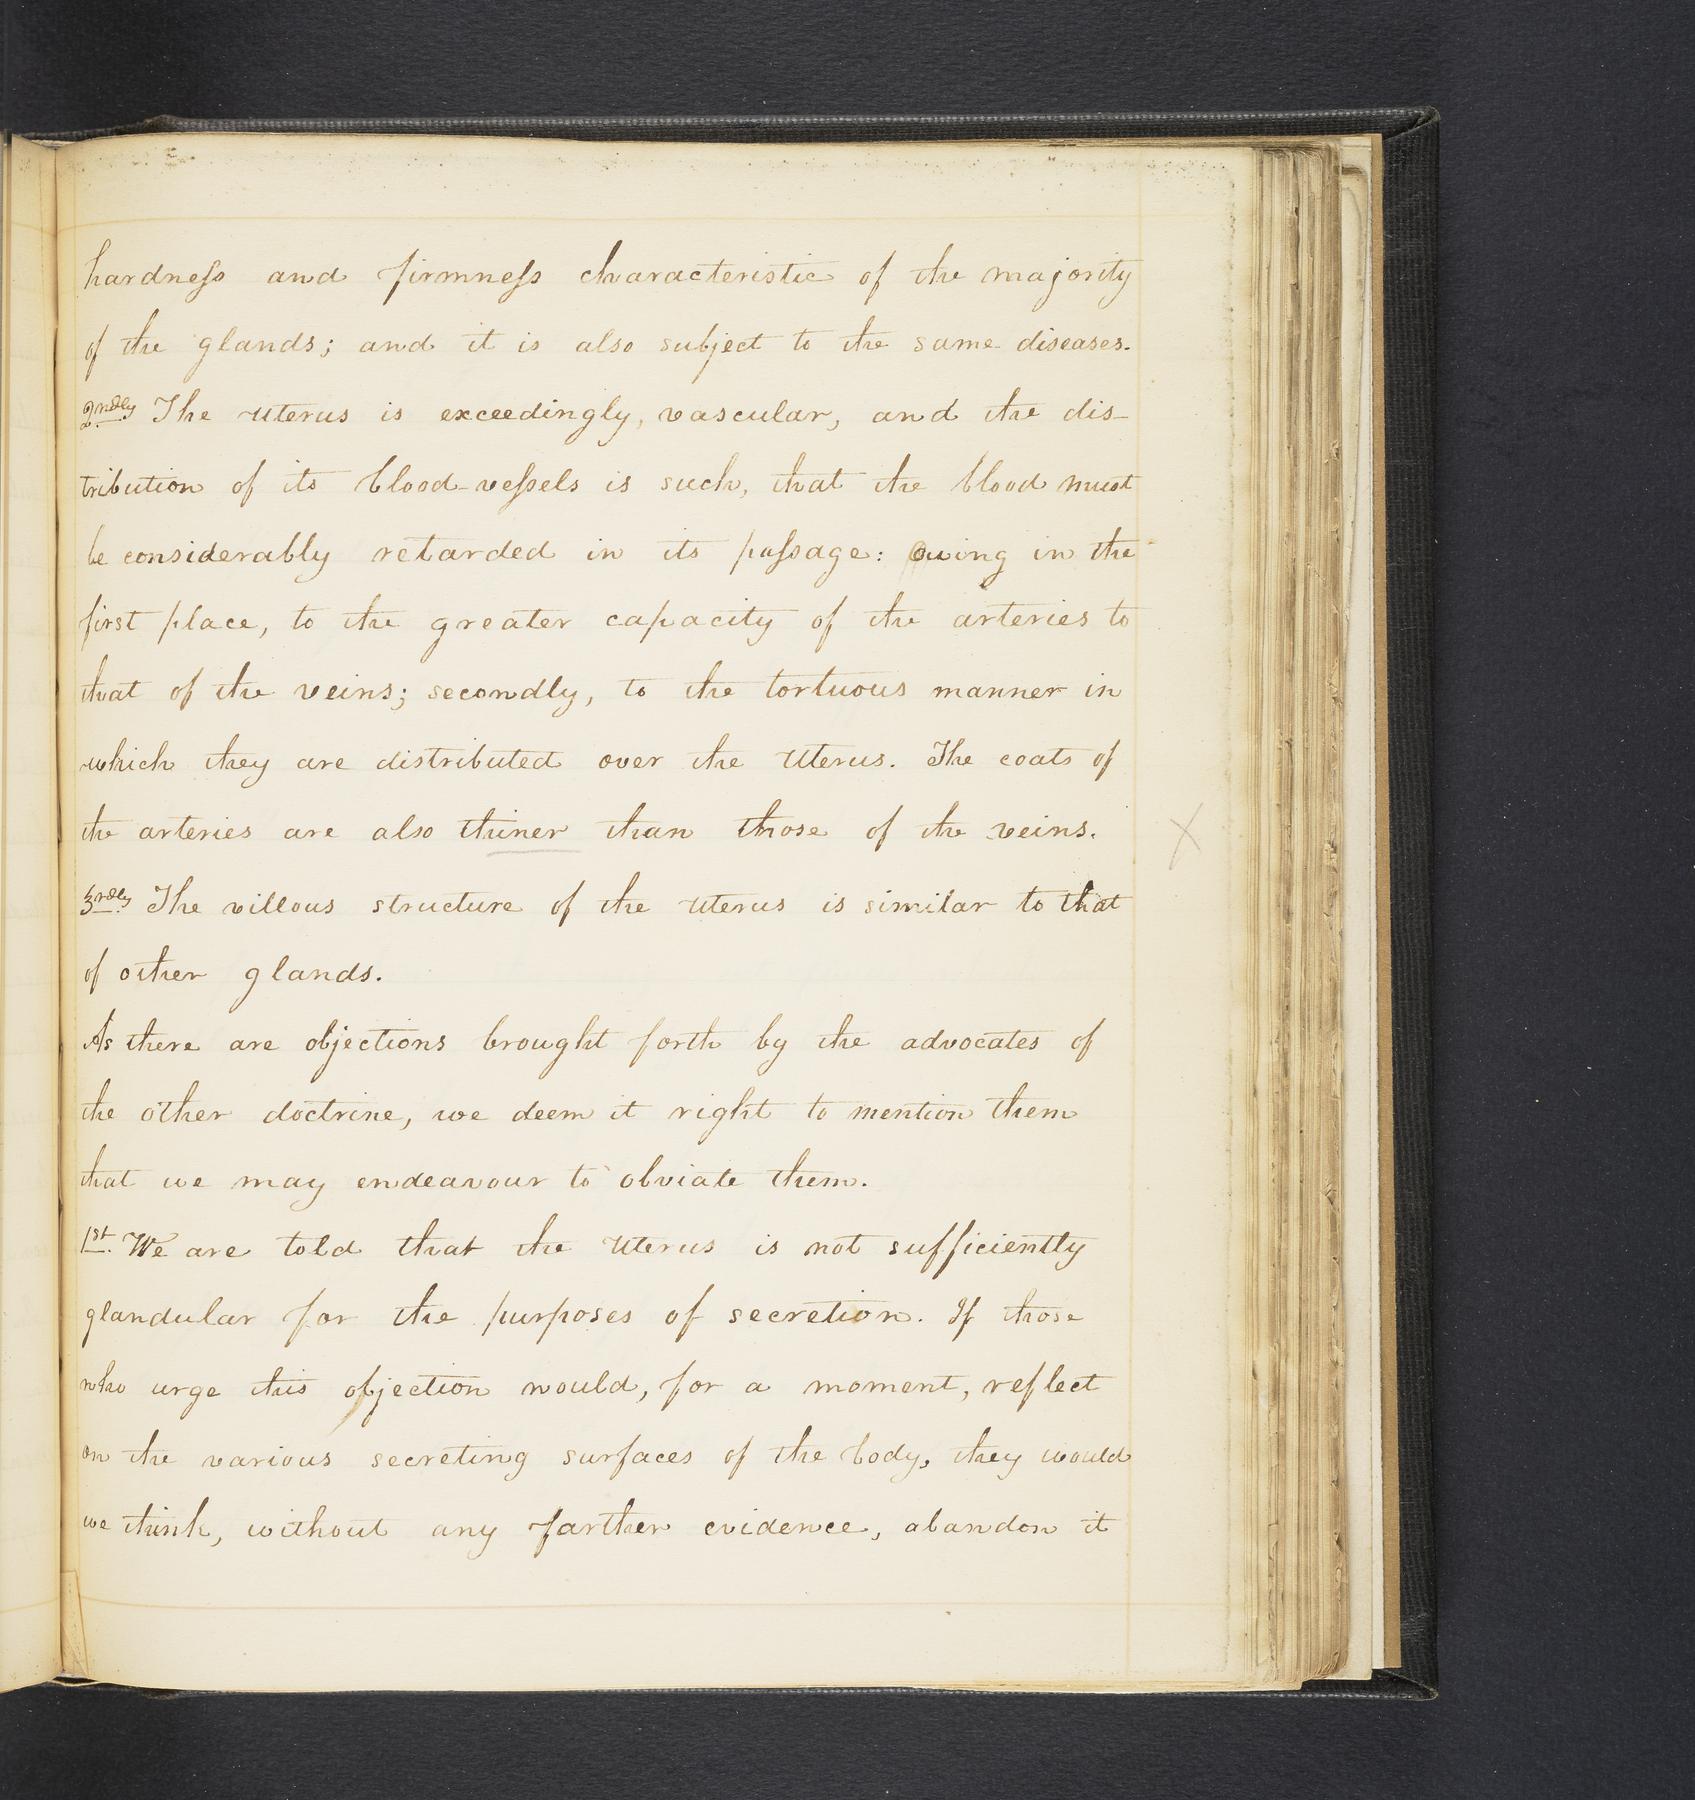 hardneſs and firmneſs characteristic of the majority
of the glands; and it is also subject to the same diseases.
2ndly The uterus is exceedingly, vascular, and the dis-
tribution of its blood-veſsels is such, that the blood must
be considerably retarded in its paſsage: owing in the
first place, to the greater capacity of the arteries to
that of the veins; secondly, to the tortuous manner in
which they are distributed over the Uterus. The coats of
the arteries are also thiner than those of the veins.
3rdly The villous structure of the uterus is similar to that
of other glands.
As there are objections brought forth by the advocates of
the other doctrine, we deem it right to mention them
that we may endeavour to obviate them.
1st. We are told that the Uterus is not sufficiently
glandular for the purposes of secretion. If those
who urge this objection would, for a moment, reflect
on the various secreting surfaces of the body, they would
we think, without any farther evidence, abandon it